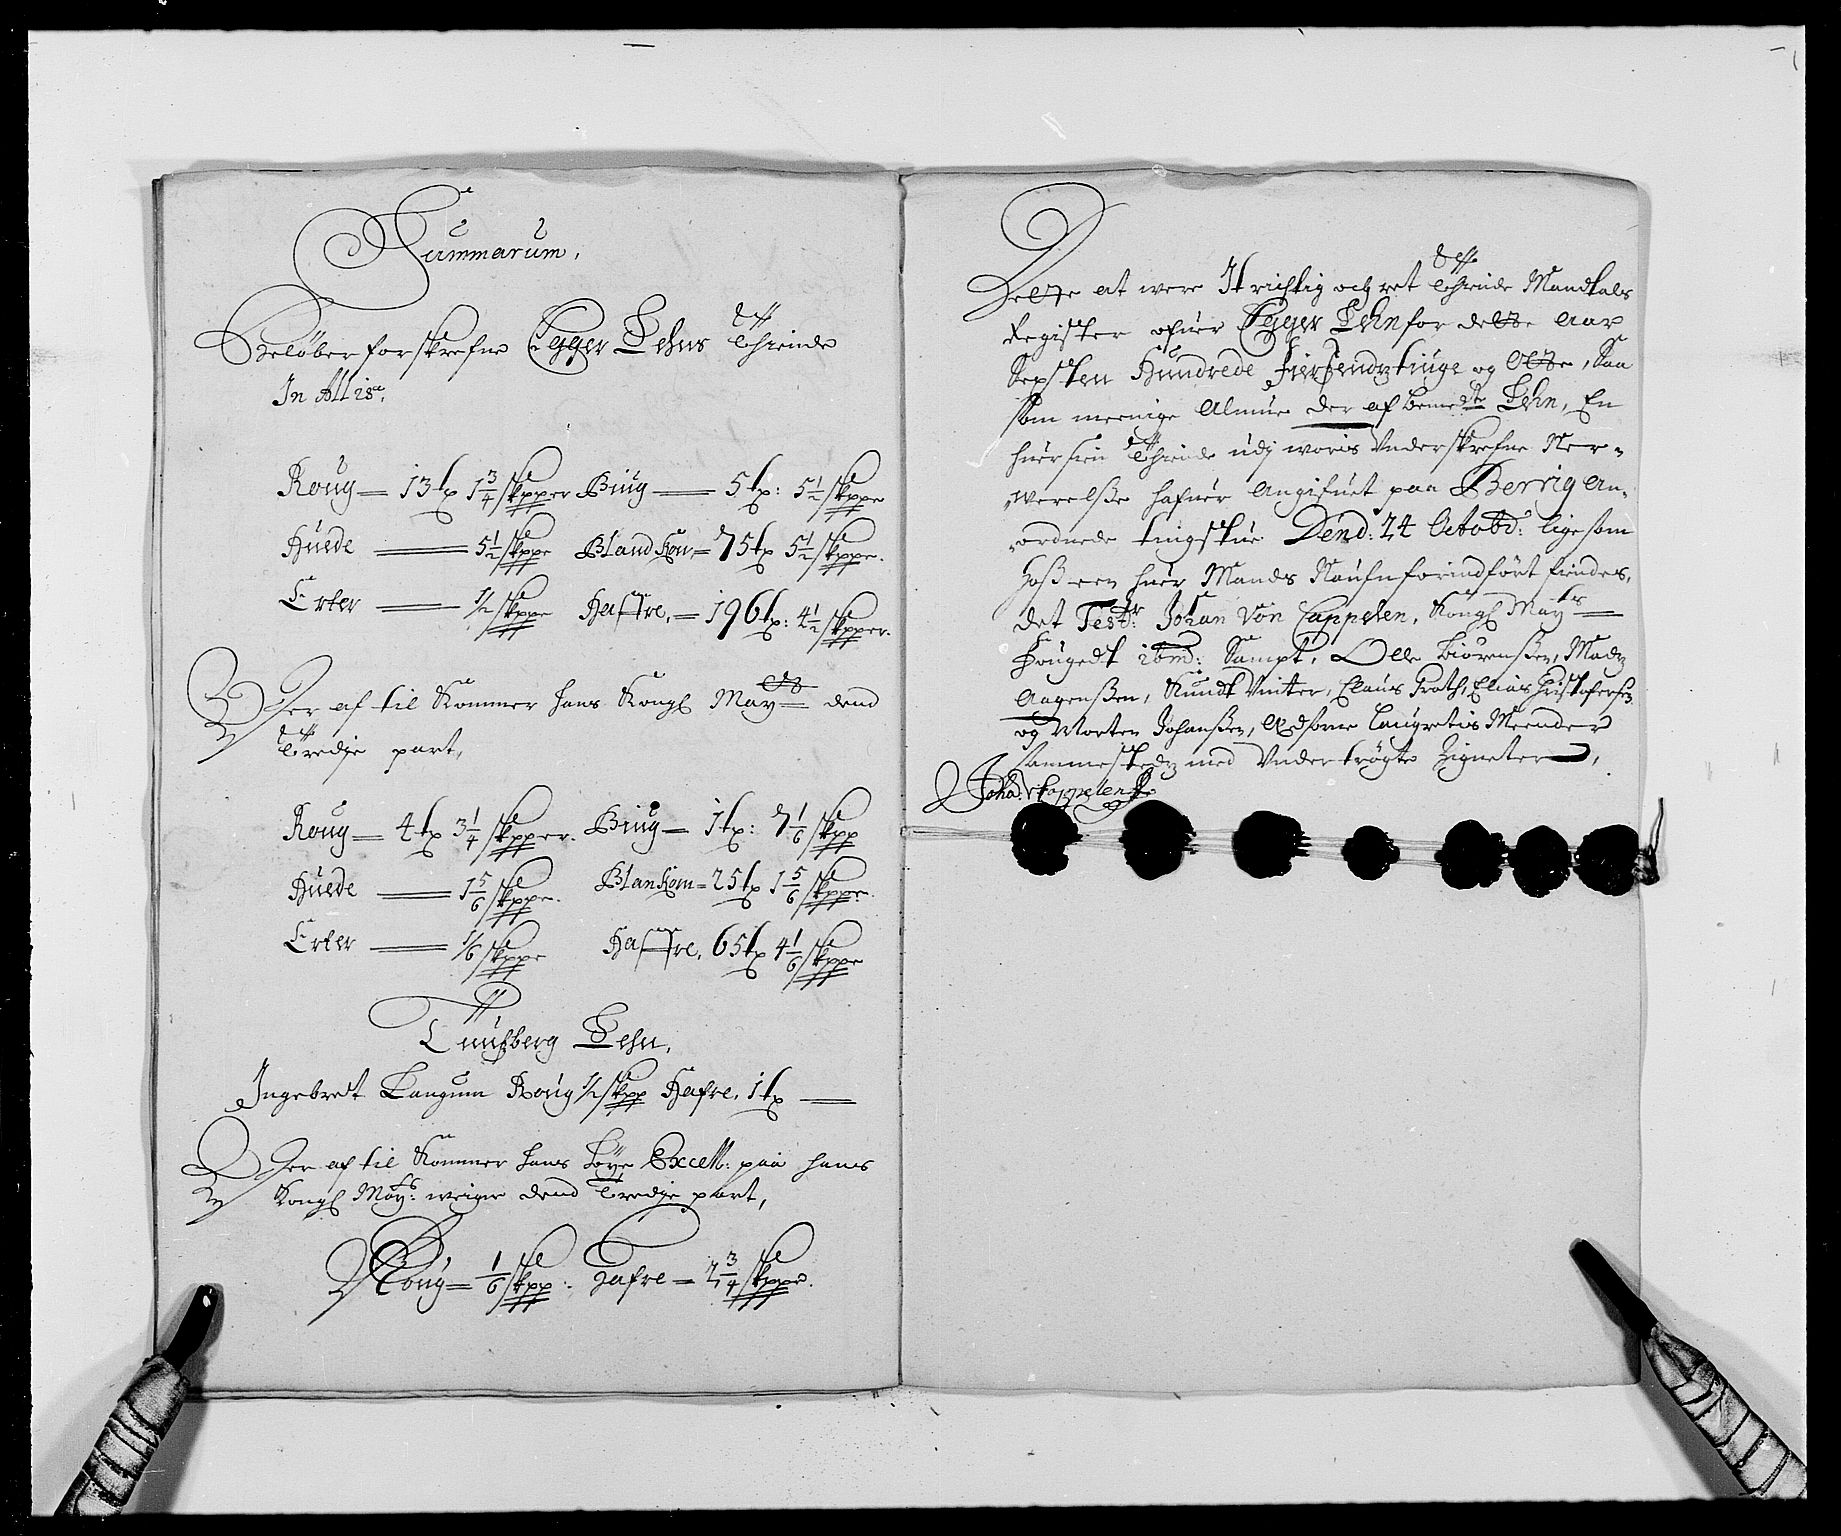 Summarum,
Beløber forskrefne Egger Lehns Thiende
In Allis,
Roug — 13 tr 1 3/4 skpper Biug — 5 tr: 5 1/2 skppe
Huede — 5 1/2 skppe Bland Korn = 75 tr 5 1/2 skppe.
Erter — 1/2 skppe Haffre, = 196 tr: 4 1/2 skpper.
Der af til Kommer hans Kongl May dend
Tredje part,
Roug — 4 tr 3 1/4 skpper. Biug — 1 tr: 7 1/6 skpp
Huede — 1 5/6 skppe. Blankorn = 25 tr 1 5/6 skppe.
Erter — 1/6 skppe Haffre, 65 tr 4 1/6 skppe
Tunsberg Lehn,
Ingebret Langum Roug 1/2 skpp Hafre, 1 tr —
Der af til Kommer hans Høye Excell: paa hans
Kongl May: weigne dend Tredje part,
Roug = 1/6 skpp: Hafre = 2 3/4 skppe.
Dette at were It richtig och ret Thiende Mandtals
Register ofuer Egger Lehn for dette Aar
Sexsten Hundrede Fiersendztiuge og Otte, Saa
som meenige Almue der af bemedte Lehn, En
huer sin Thiende udj woris Underskrefne Ner-
werelsse hafuer Angifuet paa Berrig An-
ordnede tingstue Dend: 24 Octobr: ligesom
Hoss een huer Mands Naufn forindført findes,
det Test: Johan Von Cappelen, Kongl Mayts
Fougedt ibm: Sampt, Olle Biørenssen, Madz
Aagenssen, Knudt Vinter, Claus Groth, Elias Christofersen
og Morten Johanssen, Edsorne Laugretis Meender
sammestedz med Vndertrøgte Zigneter,
Joha: v Cappelen